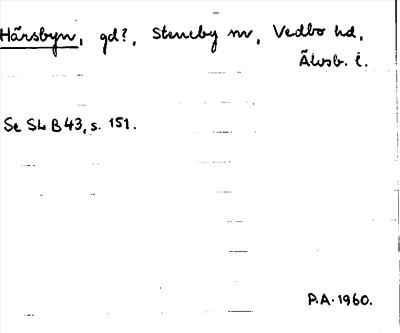 Härsbyn, gd?, Steneby sn, Vedbo hd,
Älvsb. l.
Se Sh B 43, s. 151.
P.A. 1960.